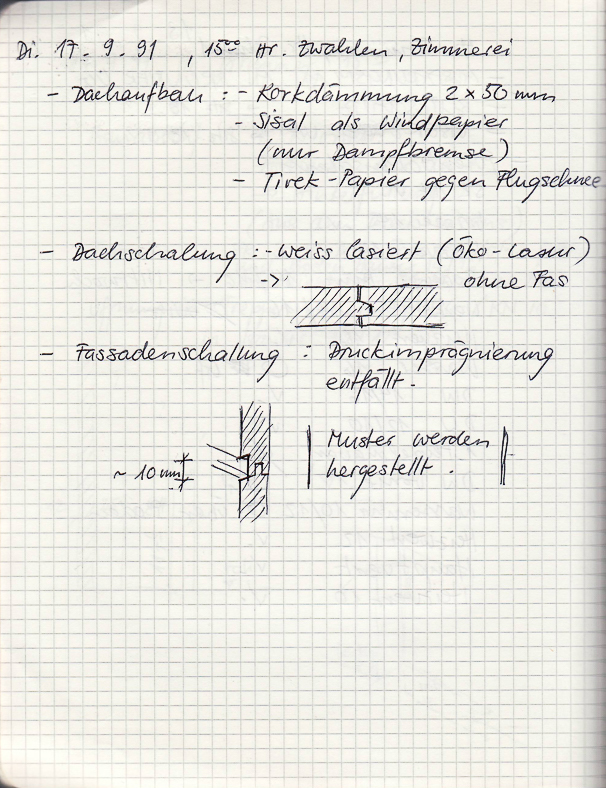 Di. 17. 9. 91 , 15⁰⁰ Hr. Zwahlen, Zimmerei
- Dachaufbau : - Korkdämmung 2 x 50 mm
- Sisal als Windpapier
(nur Dampfbremse)
- Tivek-Papier gegen Flugschnee
- Dachschalung : - weiss lasiert (Öko-Lasur)
-> ohne Fas
- Fassadenschallung : Druckimprägnierung
entfällt.
~ 10 mm
Muster werden
hergestellt.